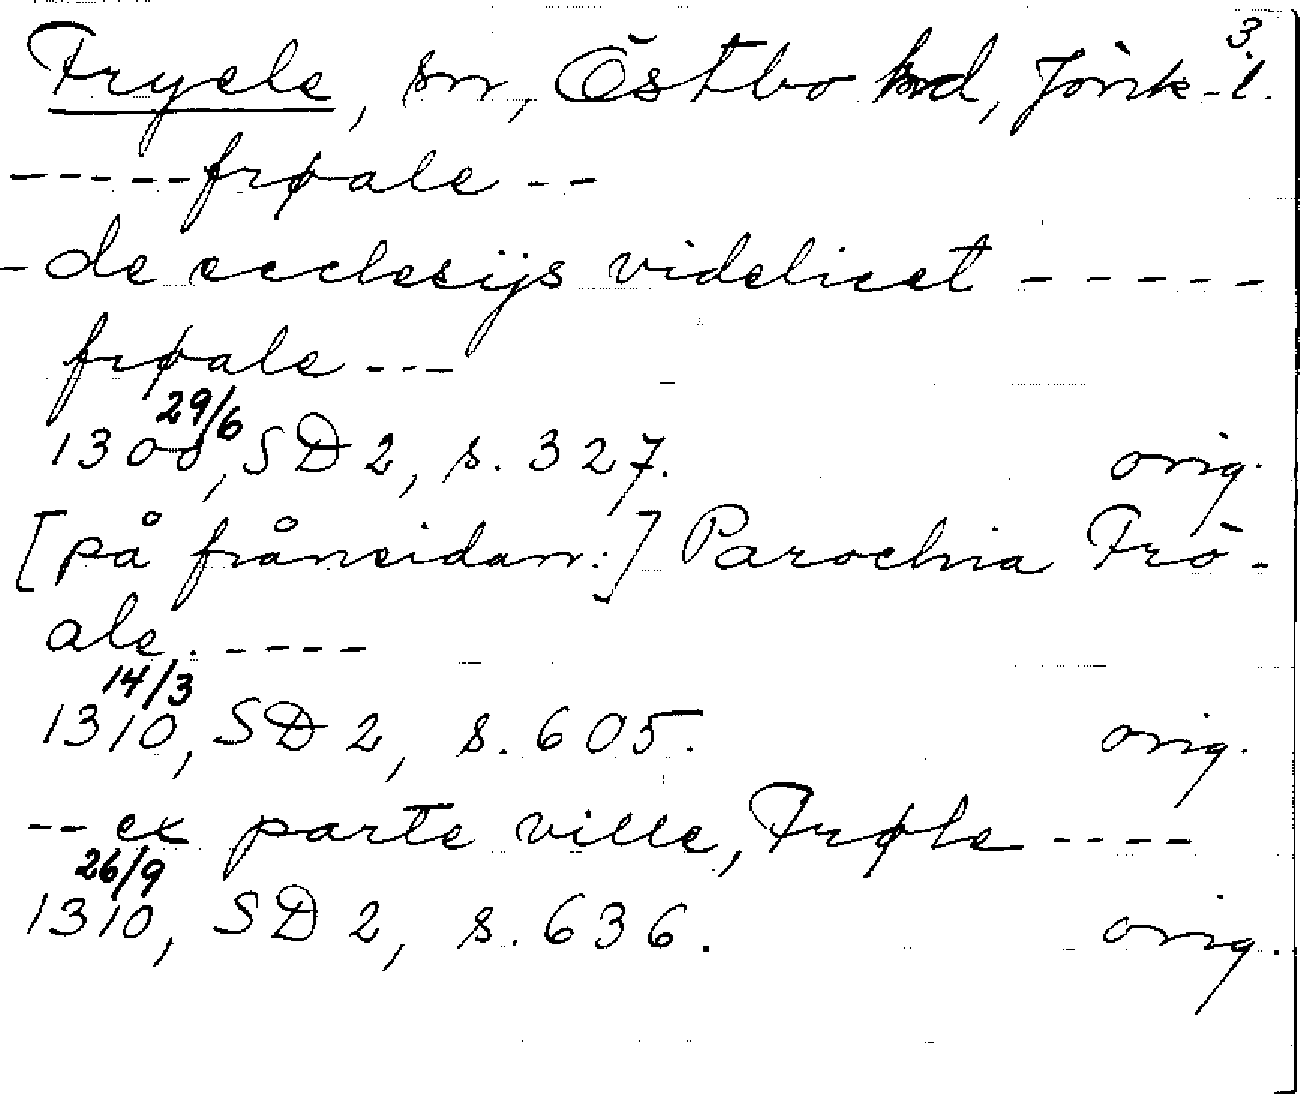 3.
Fryele, sn, Östbo hd, Jönk. l.
-----frøale--
-de ecclesijs videlicet-----
frøale---
29/6
1300, SD 2, s. 327. orig.
[på frånsidan:] Parochia Frö-
ale.----
14/3
1310, SD 2, s. 605. orig.
--ex parte ville, Frøle----
26/9
1310, SD 2, s. 636. orig.